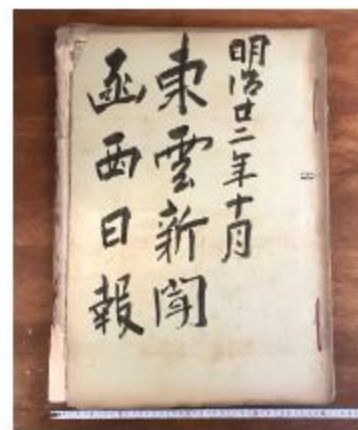 明治廿二年十月
東雲新聞
凾西日報